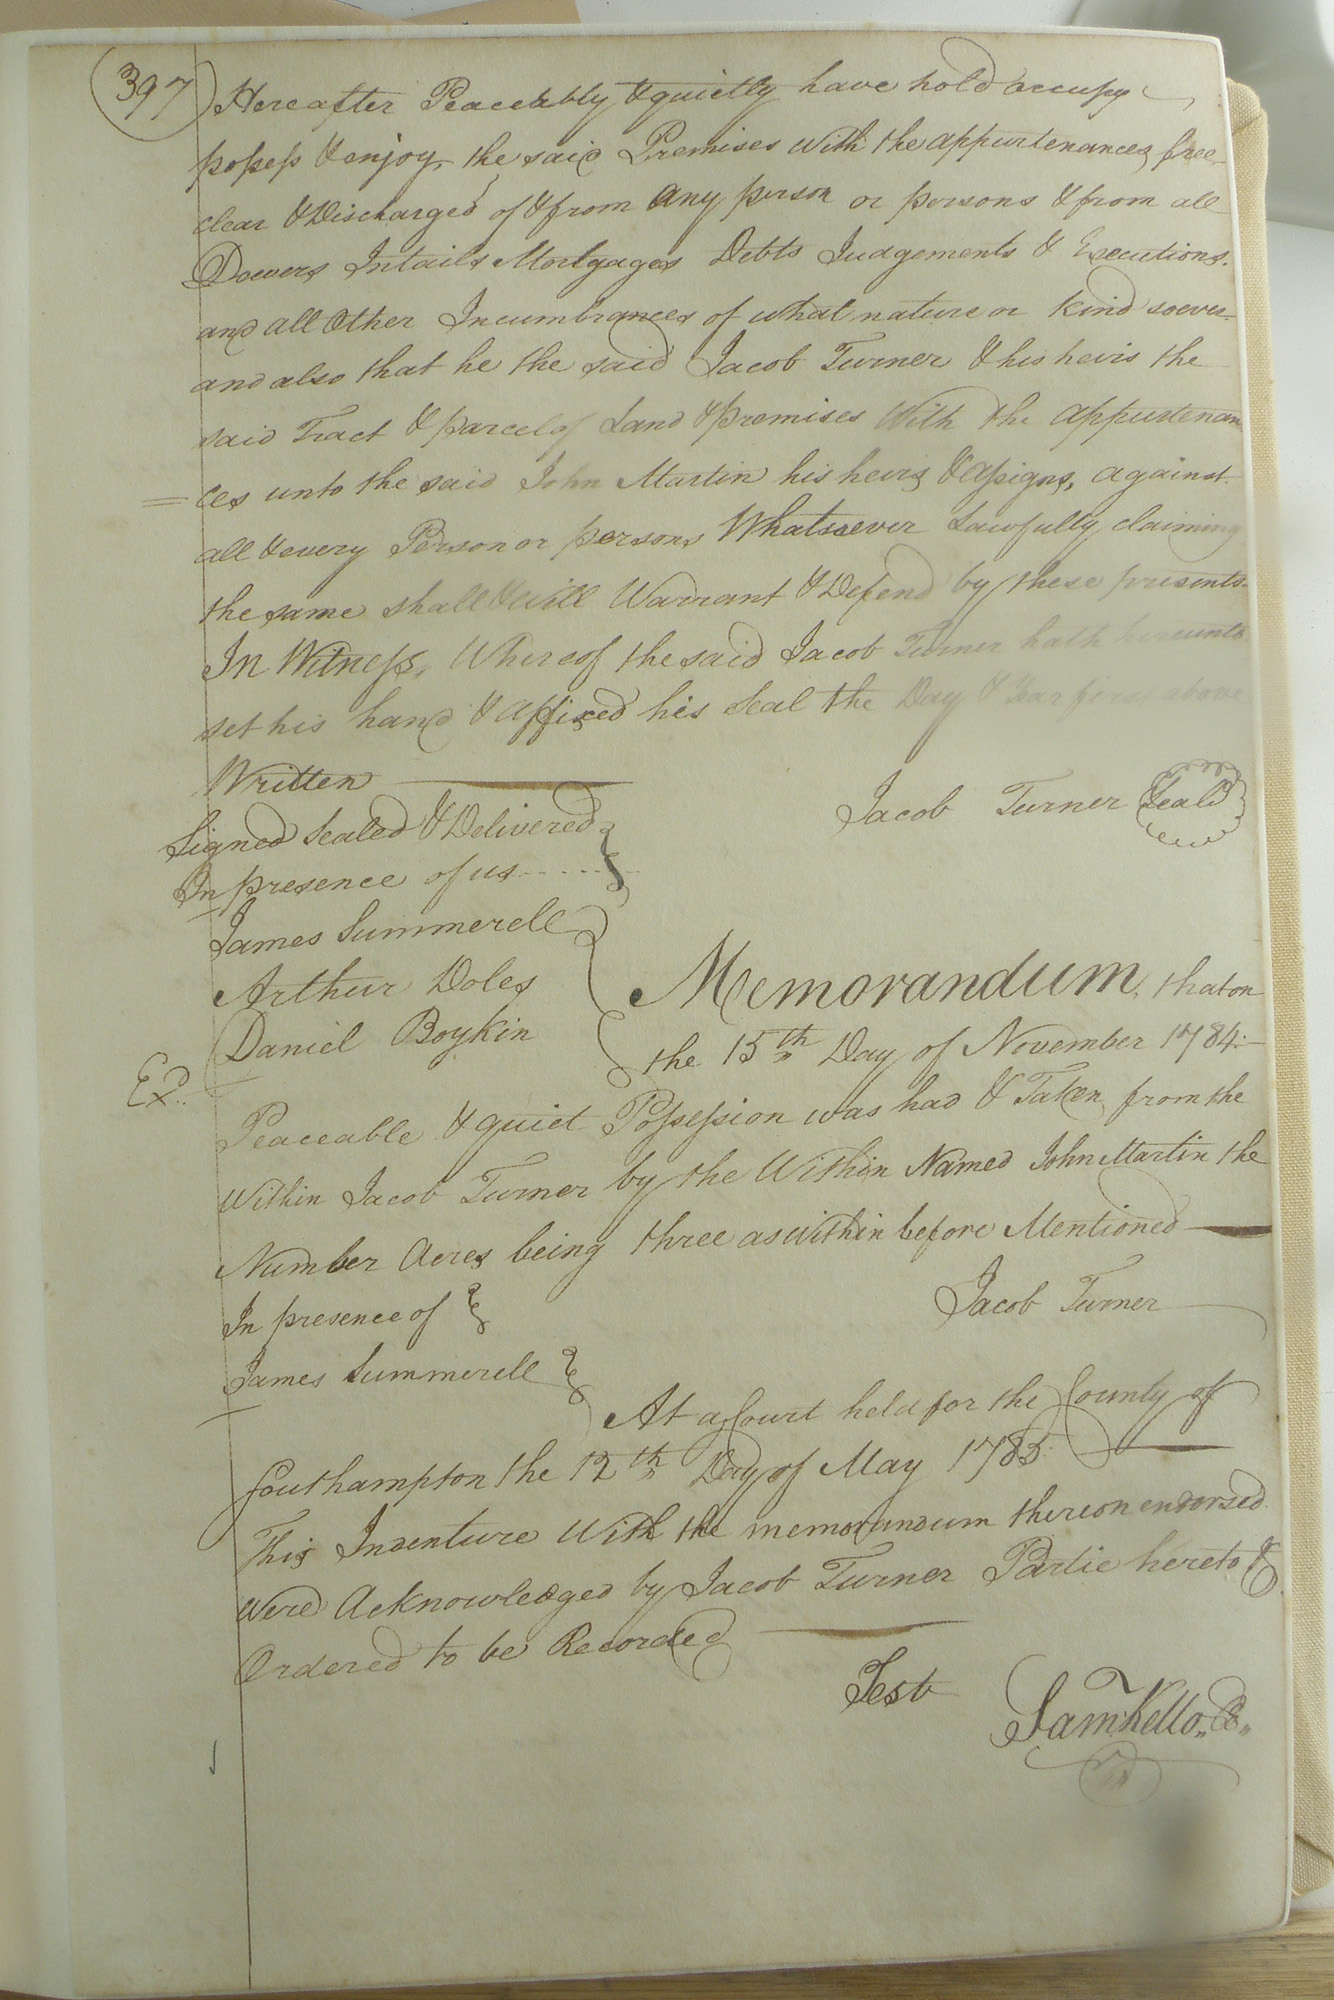 (397)
Hereafter Peaceably & quietly have hold occupy
possess & enjoy the said Premises With the appurtenances free
clear & Discharged of & from any person or persons & from all
Dowers Intails Mortgages Debts Judgements & Executions.
and all Other Incumbrances of what nature or kind soever
and also that he the said Jacob Turner & his heirs the
said Tract & parcel of Land & premises With the appurtenan
=ces unto the said John Martin his heirs & assigns, against
all & every Person or persons Whatsoever Lawfully claiming
the same shall & will Warrant & Defend by these presents
In Witness, Whereof the said Jacob Turner hath hereunto
set his hand & affixed his Seal the Day & Year first above
Written
Jacob Turner Seal
Signed Sealed & Delivered
In presence of us
James Summerell
Arthur Doles
Daniel Boykin
Memorandum, that on
the 15th Day of November 1784:
Ex.d
Peaceable & quiet Possession was had & Taken from the
Within Jacob Turner by the Within Named John Martin the
Number Acres being three as within before Mentioned
Jacob Turner
In presence of
James Summerell
At a Court held for the County of
Southampton the 12th Day of May 1785
This Indenture With the memorandum thereon endorsed
were Acknowledged by Jacob Turner Partie hereto &
Ordered to be Recorded
Test
Sam Kello